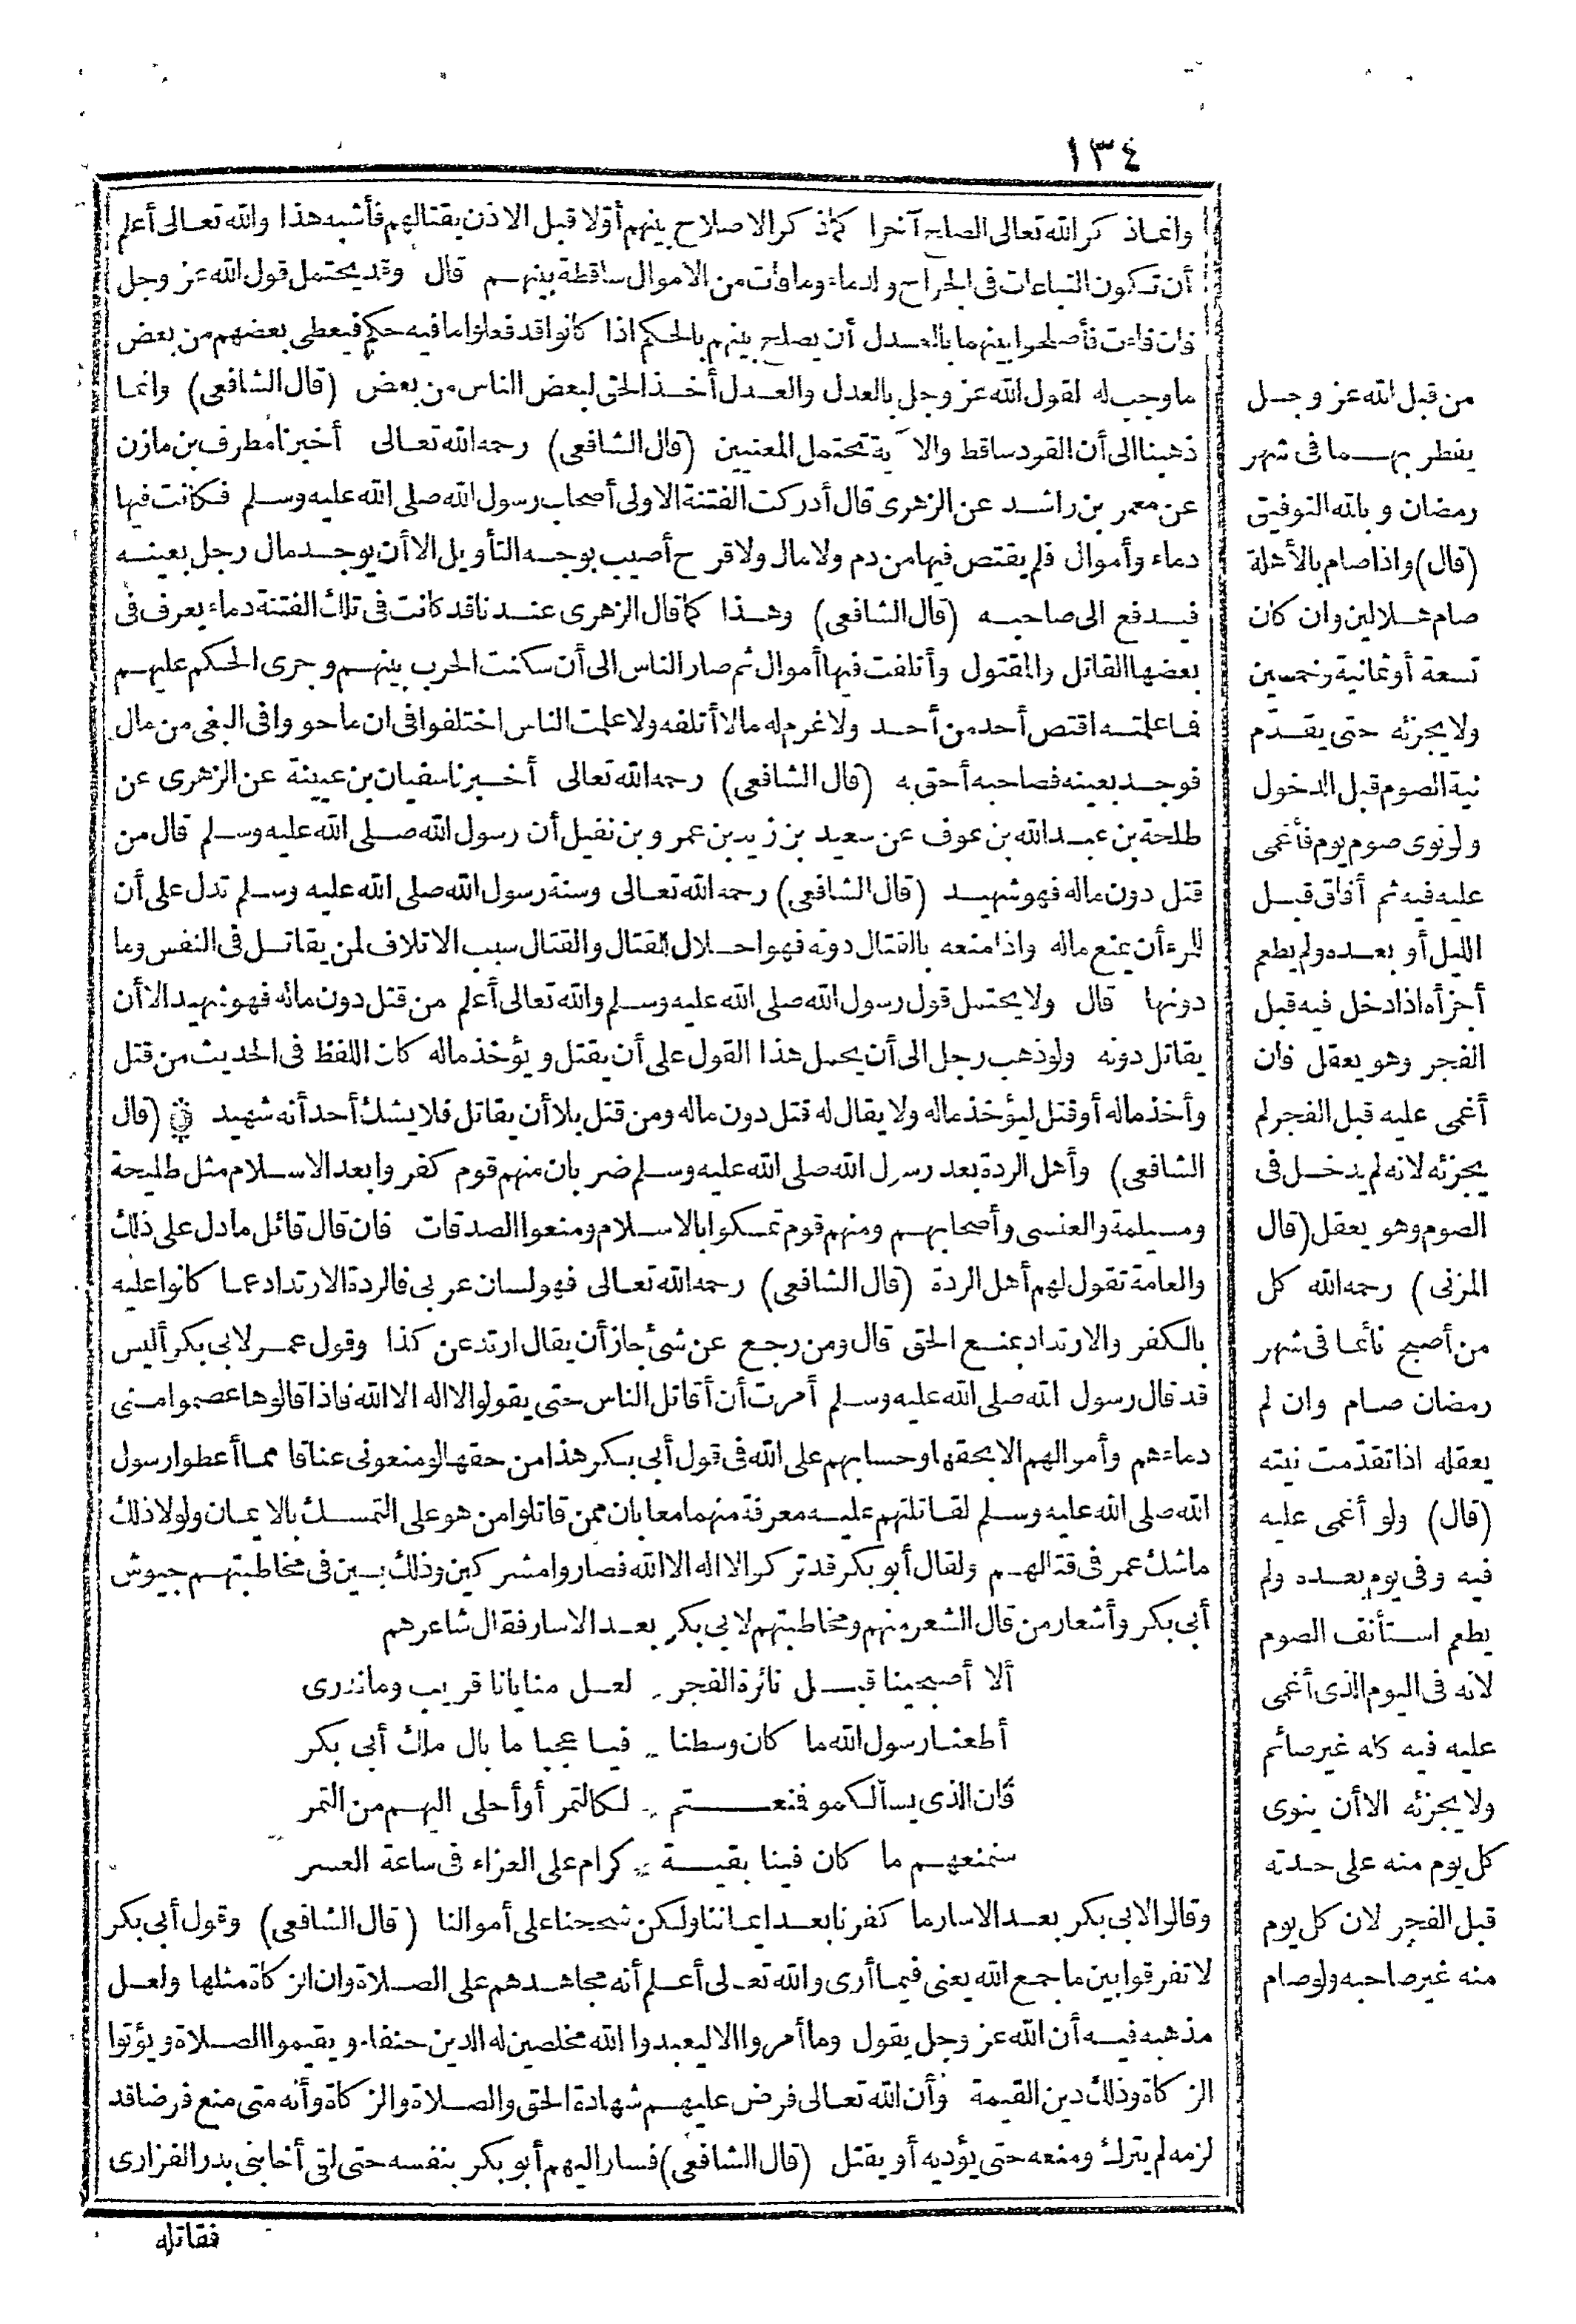 ١٣٤
وانما ذكر الله تعالى الصلح آخرا كما ذكر الاصلاح بينهم أولا قبل الاذن بقتالهم فأشبه هذا والله تعالى أعلم
أن تكون التباعات فى الجراح والدماء وما فات من الاموال ساقطة بينهم قال وقد يحتمل قول الله عز وجل
فان فاءت فأصلحوا بينهما بالعدل أن يصلح بينهم بالحكم اذا كانوا قد فعلوا ما فيه حكم فيعطى بعضهم من بعض
ما وجب له لقول الله عز وجل بالعدل والعدل أخذ الحق لبعض الناس من بعض (قال الشافعى) وانما
ذهبنا الى أن القود ساقط والآية تحتمل المعنيين (قال الشافعى) رحمه الله تعالى أخبرنا مطرف بن مازن
عن معمر بن راشد عن الزهرى قال أدركت الفتنة الاولى أصحاب رسول الله صلى الله عليه وسلم فكانت فيها
دماء وأموال فلم يقتص فيها من دم ولا مال ولا قرح أصيب بوجه التأويل الا أن يوجد مال رجل بعينه
فيدفع الى صاحبه (قال الشافعى) وهذا كما قال الزهرى عندنا قد كانت فى تلك الفتنة دماء يعرف فى
بعضها القاتل والمقتول وأتلفت فيها أموال ثم صار الناس الى أن سكنت الحرب بينهم وجرى الحكم عليهم
فما علمته اقتص أحد من أحد ولا غرم له مالا أتلفه ولا علمت الناس اختلفوا فى ان ما حووا فى البغى من مال
فوجد بعينه فصاحبه أحق به (قال الشافعى) رحمه الله تعالى أخبرنا سفيان بن عيينة عن الزهرى عن
طلحة بن عبد الله بن عوف عن سعيد بن زيد بن عمرو بن نفيل أن رسول الله صلى الله عليه وسلم قال من
قتل دون ماله فهو شهيد (قال الشافعى) رحمه الله تعالى وسنة رسول الله صلى الله عليه وسلم تدل على أن
للمرء أن يمنع ماله واذا منعه بالقتال دونه فهو احلال للقتال والقتال سبب الاتلاف لمن يقاتل فى النفس وما
دونها قال ولا يحتمل قول رسول الله صلى الله عليه وسلم والله تعالى أعلم من قتل دون ماله فهو شهيد الا أن
يقاتل دونه ولو ذهب رجل الى أن يحمل هذا القول على أن يقتل ويؤخذ ماله كان اللفظ فى الحديث من قتل
وأخذ ماله أو قتل ليؤخذ ماله ولا يقال له قتل دون ماله ومن قتل بلا أن يقاتل فلا يشك أحد أنه شهيد (قال
الشافعى) وأهل الردة بعد رسول الله صلى الله عليه وسلم ضربان منهم قوم كفروا بعد الاسلام مثل طليحة
ومسيلمة والعنسى وأصحابهم ومنهم قوم تمسكوا بالاسلام ومنعوا الصدقات فان قال قائل ما دل على ذلك
والعامة تقول لهم أهل الردة (قال الشافعى) رحمه الله تعالى فهو لسان عربى فالردة الارتداد عما كانوا عليه
بالكفر والارتداد بمنع الحق قال ومن رجع عن شئ جاز أن يقال ارتد عن كذا وقول عمر لابى بكر أليس
قد قال رسول الله صلى الله عليه وسلم أمرت أن أقاتل الناس حتى يقولوا لا اله الا الله فاذا قالوها عصموا منى
دماءهم وأموالهم الا بحقها وحسابهم على الله فى قول أبى بكر هذا من حقها لو منعونى عناقا مما أعطوا رسول
الله صلى الله عليه وسلم لقاتلتهم عليه معرفة منهما معا بان ممن قاتلوا من هو على التمسك بالايمان ولولا ذلك
ما شك عمر فى قتالهم ولقال أبو بكر قد تركوا لا اله الا الله فصاروا مشركين وذلك بين فى مخاطبتهم جيوش
أبى بكر وأشعار من قال الشعر منهم ومخاطبتهم لابى بكر بعد الاسار فقال شاعرهم
ألا أصبحينا قبل نائرة الفجر لعل منايانا قريب وما ندرى
أطعنا رسول الله ما كان وسطنا فيا عجبا ما بال ملك أبى بكر
فان الذى يسألكمو فمنعتم لكالتمر أو أحلى اليهم من التمر
سنمنعهم ما كان فينا بقية كرام على العزاء فى ساعة العسر
وقالوا لابى بكر بعد الاسار ما كفرنا بعد ايماننا ولكن شححنا على أموالنا (قال الشافعى) وقول أبى بكر
لا تفرقوا بين ما جمع الله يعنى فيما أرى والله تعالى أعلم أنه مجاهدهم على الصلاة وان الزكاة مثلها ولعل
مذهبه فيه أن الله عز وجل يقول وما أمروا الا ليعبدوا الله مخلصين له الدين حنفاء ويقيموا الصلاة ويؤتوا
الزكاة وذلك دين القيمة وأن الله تعالى فرض عليهم شهادة الحق والصلاة والزكاة وأنه متى منع فرضا قد
لزمه لم يترك ومنعه حتى يؤديه أو يقتل (قال الشافعى) فسار اليهم أبو بكر بنفسه حتى لقى أخا بنى بدر الفزارى
فقاتله
من قبل الله عز وجل
يفطر بهما فى شهر
رمضان وبالله التوفيق
(قال) واذا صام بالأهلة
صام هلالين وان كان
تسعة أو ثمانية وخمسين
ولا يجزئه حتى يقدّم
نية الصوم قبل الدخول
ولو نوى صوم يوم فأغمى
عليه فيه ثم أفاق قبل
الليل أو بعده ولم يطعم
أجزأه اذا دخل فيه قبل
الفجر وهو يعقل فان
أغمى عليه قبل الفجر لم
يجزئه لانه لم يدخل فى
الصوم وهو يعقل (قال
المزنى) رحمه الله كل
من أصبح نائما فى شهر
رمضان صام وان لم
يعقله اذا تقدّمت نيته
(قال) ولو أغمى عليه
فيه وفى يوم بعده ولم
يطعم استأنف الصوم
لانه فى اليوم الذى أغمى
عليه فيه كله غير صائم
ولا يجزئه الا أن ينوى
كل يوم منه على حدته
قبل الفجر لان كل يوم
منه غير صاحبه ولو صام